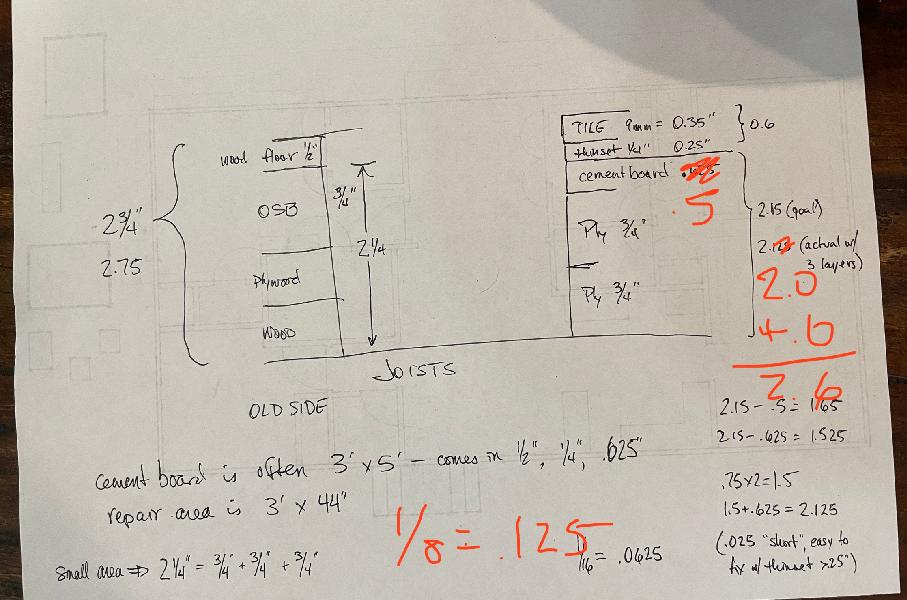 TILE 9mm = 0.35"
0.6
thinset 1/4" 0.25"
wood floor 1/2"
cement board
.5
3/4"
OSB
Ply 3/4"
2.15 (goal)
2 3/4"
2 1/4
2.75
(actual w/
3 layers)
2.0
Plywood
Ply 3/4"
+.6
WOOD
JOISTS
2.6
OLD SIDE
2.15 - .5 = 1.65
2.15 - .625 = 1.525
cement board is often 3' x 5' - comes in 1/2", 1/4", .625"
.75x2=1.5
repair area is 3' x 44"
1.5+.625 = 2.125
1/8 = .125
(.025 "short", easy to
1/16 = .0625
fix w/ thinset >.25")
small area ⇒ 2 1/4" = 3/4" + 3/4" + 3/4"